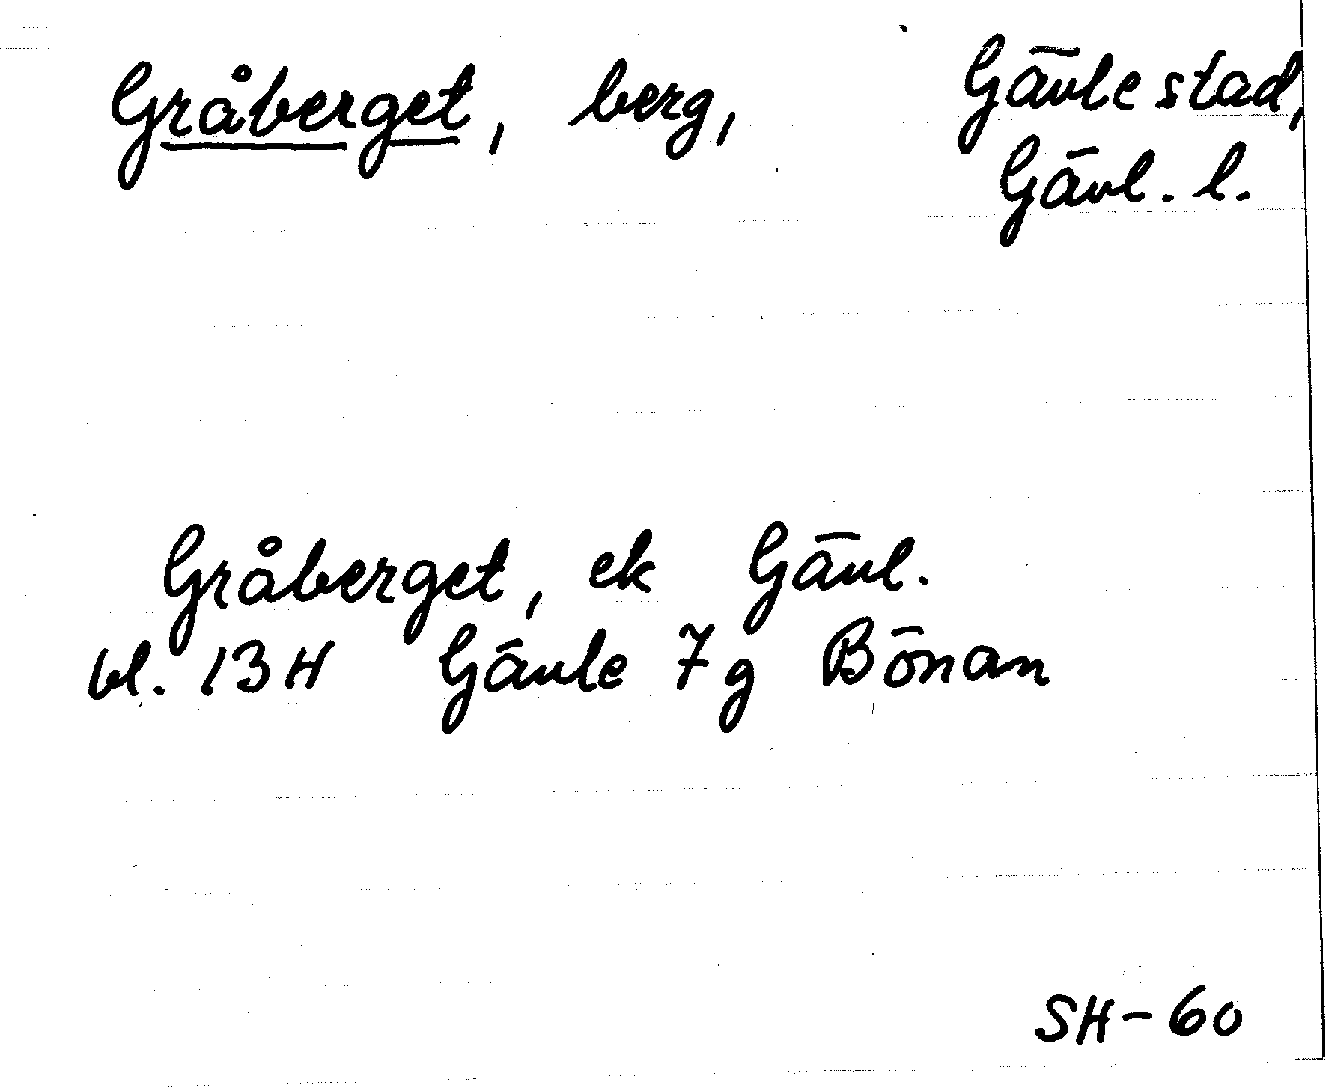 Gråberget, berg, Gävle stad,
Gävl. l.
Gråberget, ek Gävl.
bl. 13H Gävle 7g Bönan
SH-60